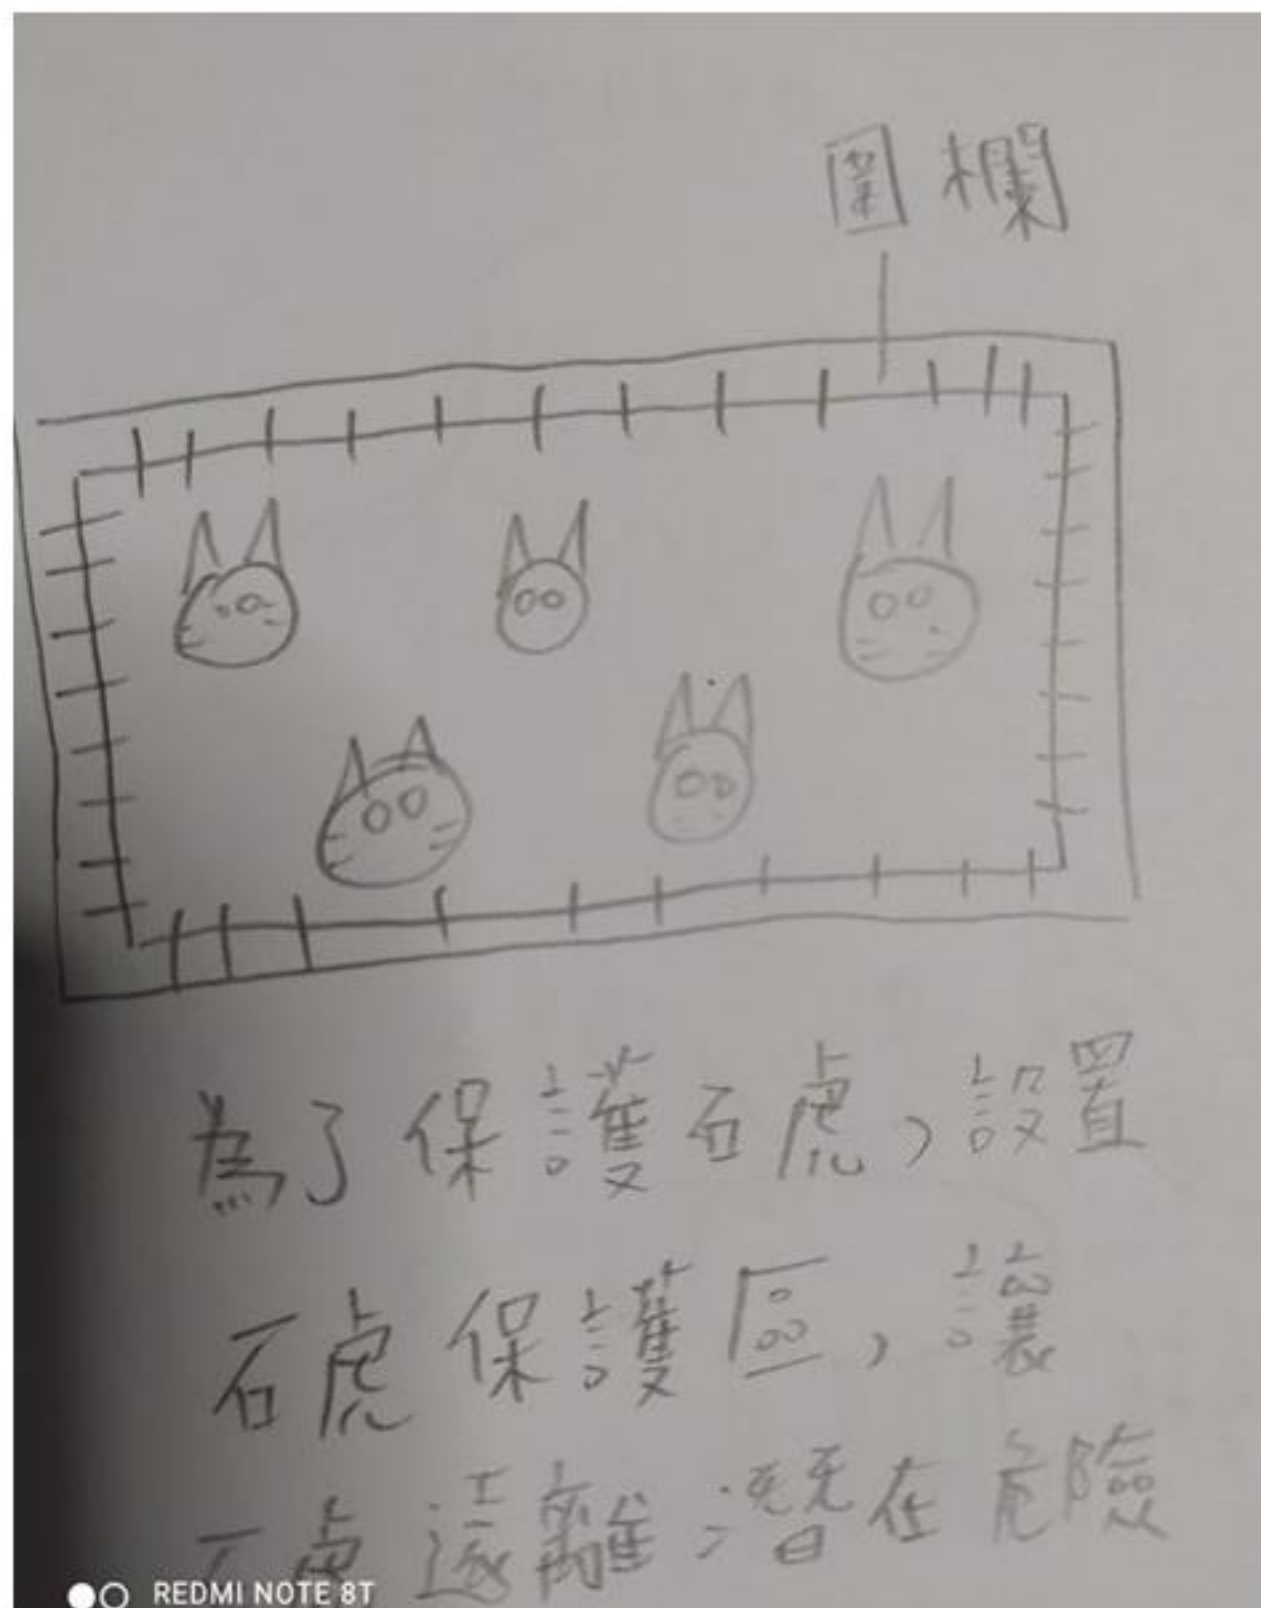 圍欄
為了保護石虎,設置
石虎保護區,讓
石虎遠離潛在危險
REDMI NOTE 8T